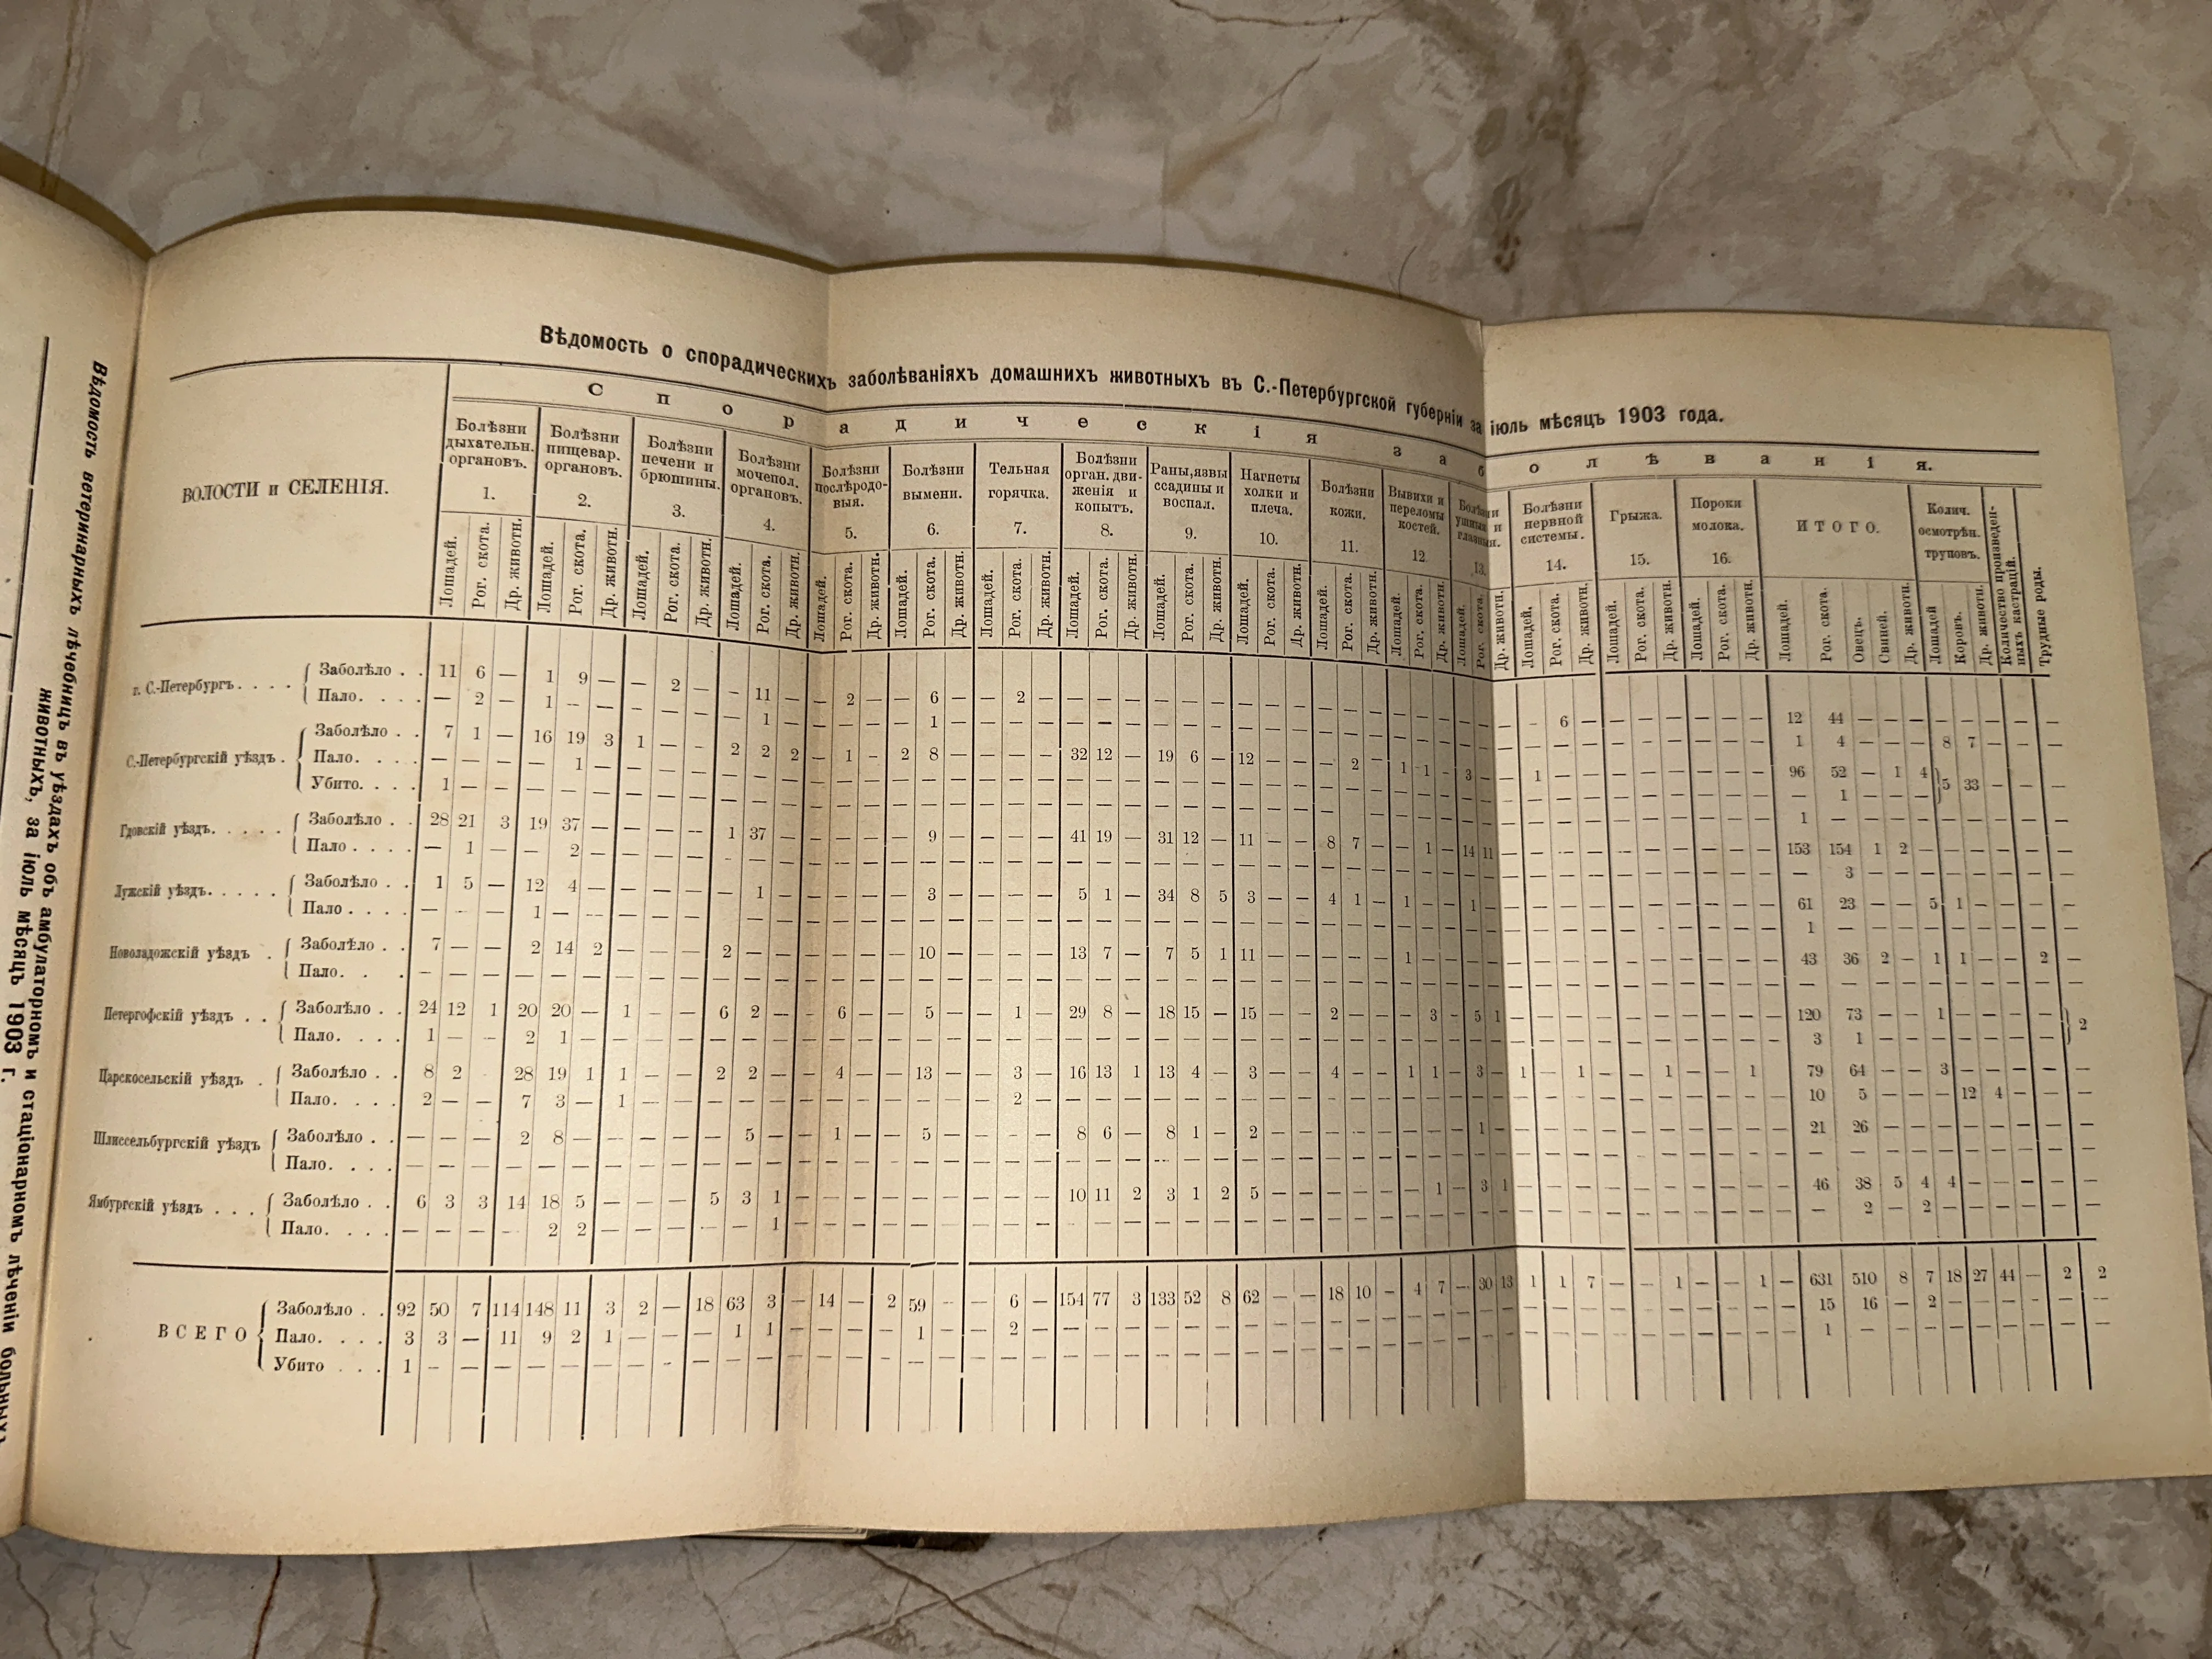 Вѣдомость ветеринарныхъ лѣчебницъ въ уѣздахъ объ амбулаторномъ и стаціонарномъ лѣченіи больныхъ
животныхъ, за іюль мѣсяцъ 1903 г.
Вѣдомость о спорадическихъ заболѣваніяхъ домашнихъ животныхъ въ С.-Петербургской губерніи за іюль мѣсяцъ 1903 года.
Спорадическія заболѣванія.
ВОЛОСТИ и СЕЛЕНІЯ.
Болѣзни дыхательн. органовъ. 1.
Болѣзни пищевар. органовъ. 2.
Болѣзни печени и брюшины. 3.
Болѣзни мочепол. органовъ. 4.
Болѣзни послѣродовыя. 5.
Болѣзни вымени. 6.
Тельная горячка. 7.
Болѣзни орган. движенія и копытъ. 8.
Раны, язвы ссадины и воспал. 9.
Нагнеты холки и плеча. 10.
Болѣзни кожи. 11.
Вывихи и переломы костей. 12
Болѣзни ушныя и глазныя. 13.
Болѣзни нервной системы. 14.
Грыжа. 15.
Пороки молока. 16.
ИТОГО.
Колич. осмотрѣн. труповъ.
Количество произведенныхъ кастрацій.
Трудные роды.
Лошадей. Рог. скота. Др. животн. Лошадей. Рог. скота. Др. животн. Лошадей. Рог. скота. Др. животн. Лошадей. Рог. скота. Др. животн. Лошадей. Рог. скота. Др. животн. Лошадей. Рог. скота. Др. животн. Лошадей. Рог. скота. Др. животн. Лошадей. Рог. скота. Др. животн. Лошадей. Рог. скота. Др. животн. Лошадей. Рог. скота. Др. животн. Лошадей. Рог. скота. Др. животн. Лошадей. Рог. скота. Др. животн. Лошадей. Рог. скота. Др. животн. Лошадей. Рог. скота. Др. животн. Лошадей. Рог. скота. Др. животн. Лошадей. Рог. скота. Др. животн. Лошадей. Рог. скота. Овецъ. Свиней. Др. животн. Лошадей Коровъ. Др. животн.
г. С.-Петербургъ. . . . Заболѣло . . 11 6 — 1 9 — — 2 — — 11 — — 2 — — 6 — — 2 — — — — — — — — — — — — — — — — — — — — 6 — — — — — — — 12 44 — — — — — — — —
Пало. . . . — 2 — 1 — — — — — — 1 — — — — — 1 — — — — — — — 1 4 — — — 8 7 — — —
С.-Петербургскій уѣздъ . Заболѣло . . 7 1 — 16 19 3 1 — — 2 2 2 — 1 — 2 8 — — — — 32 12 — 19 6 — 12 — — — 2 — 1 1 — 3 — — 1 — — — — — — — — 96 52 — 1 4 5 33 — — —
Пало. . . . — — — — 1 — — — — — — — — — 1 — — —
Убито. . . . 1 — — — — — — — — — — — 1 — — — —
Гдовскій уѣздъ. . . . . Заболѣло . . 28 21 3 19 37 — — — — 1 37 — — — — — 9 — — — — 41 19 — 31 12 — 11 — — 8 7 — — 1 — 14 11 — — — — — — — — — — 153 154 1 2 — — — — — —
Пало . . . . — 1 — — 2 — — — — — — — — — 3 — — —
Лужскій уѣздъ. . . . . Заболѣло . . 1 5 — 12 4 — — — — — 1 — — — — — 3 — — — — 5 1 — 34 8 5 3 — — 4 1 — 1 — — 1 — — — — — — — — — — — 61 23 — — 5 1 — — — —
Пало . . . . — — — 1 — — — — — — — — — 1 — — — —
Новоладожскій уѣздъ . Заболѣло . . 7 — — 2 14 2 — — — 2 — — — — — — 10 — — — — 13 7 — 7 5 1 11 — — — — — 1 — — — — — — — — — — — — — — 43 36 2 — 1 1 — — 2 —
Пало. . . — — — — — — — — — — — —
Петергофскій уѣздъ . . Заболѣло . . 24 12 1 20 20 — 1 — — 6 2 — — 6 — — 5 — — 1 — 29 8 — 18 15 — 15 — — 2 — — — 3 — 5 1 — — — — — — — — — — 120 73 — — 1 — — — — 2
Пало. . . . 1 — — 2 1 — — — — — — — — — 3 1 — — —
Царскосельскій уѣздъ . Заболѣло . . 8 2 28 19 1 1 — — 2 2 — — 4 — — 13 — — 3 — 16 13 1 13 4 — 3 — — 4 — — 1 1 — 3 — 1 — 1 — — 1 — — 1 — 79 64 — — 3 — — — — —
Пало. . . . 2 — — 7 3 — 1 — — — — — — — — — — — — 2 — — — — 10 5 — — — 12 4 — — —
Шлиссельбургскій уѣздъ Заболѣло . . — — — 2 8 — — — — — 5 — — 1 — — 5 — — — — 8 6 — 8 1 — 2 — — — — — — — — 1 — — — — — — — — — — — 21 26 — — — — — — — —
Пало. . . . — — — — — — — — — — — —
Ямбургскій уѣздъ . . . Заболѣло . . 6 3 3 14 18 5 — — — 5 3 1 — — — — — — — — — 10 11 2 3 1 2 5 — — — — — — 1 — 3 1 — — — — — — — — — — 46 38 5 4 4 — — — — —
Пало. . . . — — — — 2 2 — — — — — 1 — — — — — — — 2 — 2 — — — — — —
ВСЕГО Заболѣло . . 92 50 7 114 148 11 3 2 — 18 63 3 — 14 — 2 59 — — 6 — 154 77 3 133 52 8 62 — — 18 10 — 4 7 — 30 13 1 1 7 — — 1 — — 1 — 631 510 8 7 18 27 44 — 2 2
Пало. . . . 3 3 — 11 9 2 1 — — — 1 1 — — — — 1 — — 2 — — — — 15 16 — 2 — — — — — —
Убито . . . 1 — — — — — — — — — — — 1 — — — — — — — — —